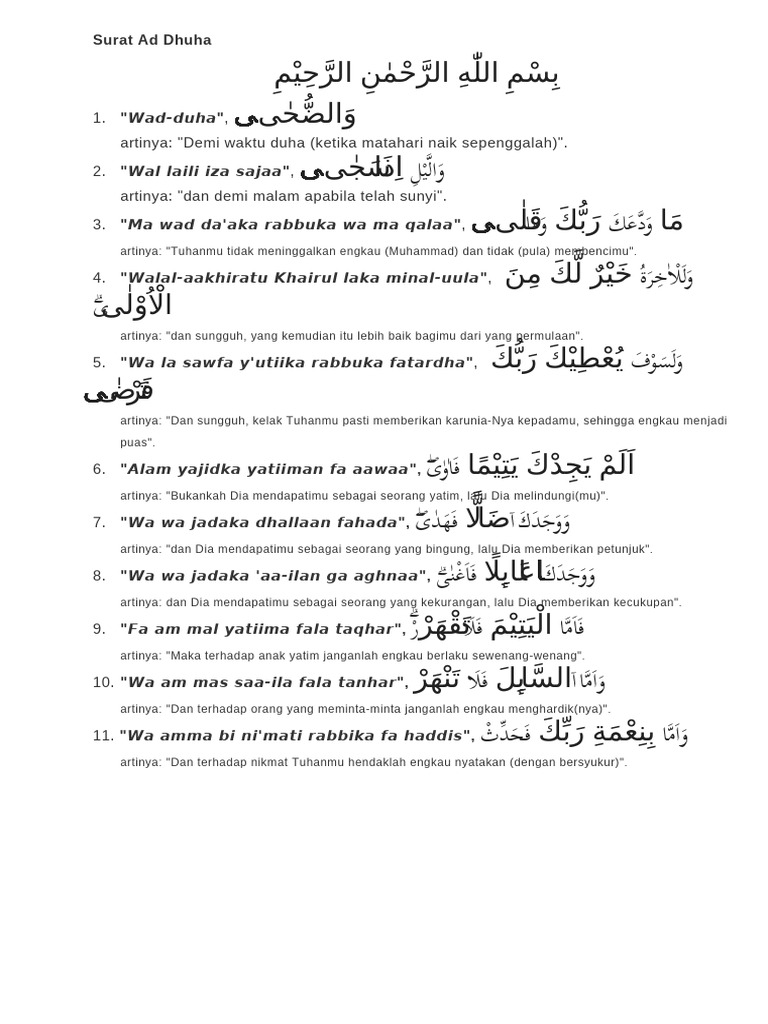 Surat Ad Dhuha
بِسْمِ اللّٰهِ الرَّحْمٰنِ الرَّحِيْمِ
1. "Wad-duha", وَالضُّحٰىۙ
artinya: "Demi waktu duha (ketika matahari naik sepenggalah)".
2. "Wal laili iza sajaa", وَالَّيْلِ اِذَا سَجٰىۙ
artinya: "dan demi malam apabila telah sunyi".
3. "Ma wad da'aka rabbuka wa ma qalaa", مَا وَدَّعَكَ رَبُّكَ وَمَا قَلٰىۗ
artinya: "Tuhanmu tidak meninggalkan engkau (Muhammad) dan tidak (pula) membencimu".
4. "Walal-aakhiratu Khairul laka minal-uula", وَلَلْاٰخِرَةُ خَيْرٌ لَّكَ مِنَ
الْاُوْلٰىۗ
artinya: "dan sungguh, yang kemudian itu lebih baik bagimu dari yang permulaan".
5. "Wa la sawfa y'utiika rabbuka fatardha", وَلَسَوْفَ يُعْطِيْكَ رَبُّكَ
فَتَرْضٰىۗ
artinya: "Dan sungguh, kelak Tuhanmu pasti memberikan karunia-Nya kepadamu, sehingga engkau menjadi
puas".
6. "Alam yajidka yatiiman fa aawaa", اَلَمْ يَجِدْكَ يَتِيْمًا فَاٰوٰىۖ
artinya: "Bukankah Dia mendapatimu sebagai seorang yatim, lalu Dia melindungi(mu)".
7. "Wa wa jadaka dhallaan fahada", وَوَجَدَكَ ضَاۤلًّا فَهَدٰىۖ
artinya: "dan Dia mendapatimu sebagai seorang yang bingung, lalu Dia memberikan petunjuk".
8. "Wa wa jadaka 'aa-ilan ga aghnaa", وَوَجَدَكَ عَاۤىِٕلًا فَاَغْنٰىۗ
artinya: dan Dia mendapatimu sebagai seorang yang kekurangan, lalu Dia memberikan kecukupan".
9. "Fa am mal yatiima fala taqhar", فَاَمَّا الْيَتِيْمَ فَلَا تَقْهَرْۗ
artinya: "Maka terhadap anak yatim janganlah engkau berlaku sewenang-wenang".
10. "Wa am mas saa-ila fala tanhar", وَاَمَّا السَّاۤىِٕلَ فَلَا تَنْهَرْ
artinya: "Dan terhadap orang yang meminta-minta janganlah engkau menghardik(nya)".
11. "Wa amma bi ni'mati rabbika fa haddis", وَاَمَّا بِنِعْمَةِ رَبِّكَ فَحَدِّثْ
artinya: "Dan terhadap nikmat Tuhanmu hendaklah engkau nyatakan (dengan bersyukur)".